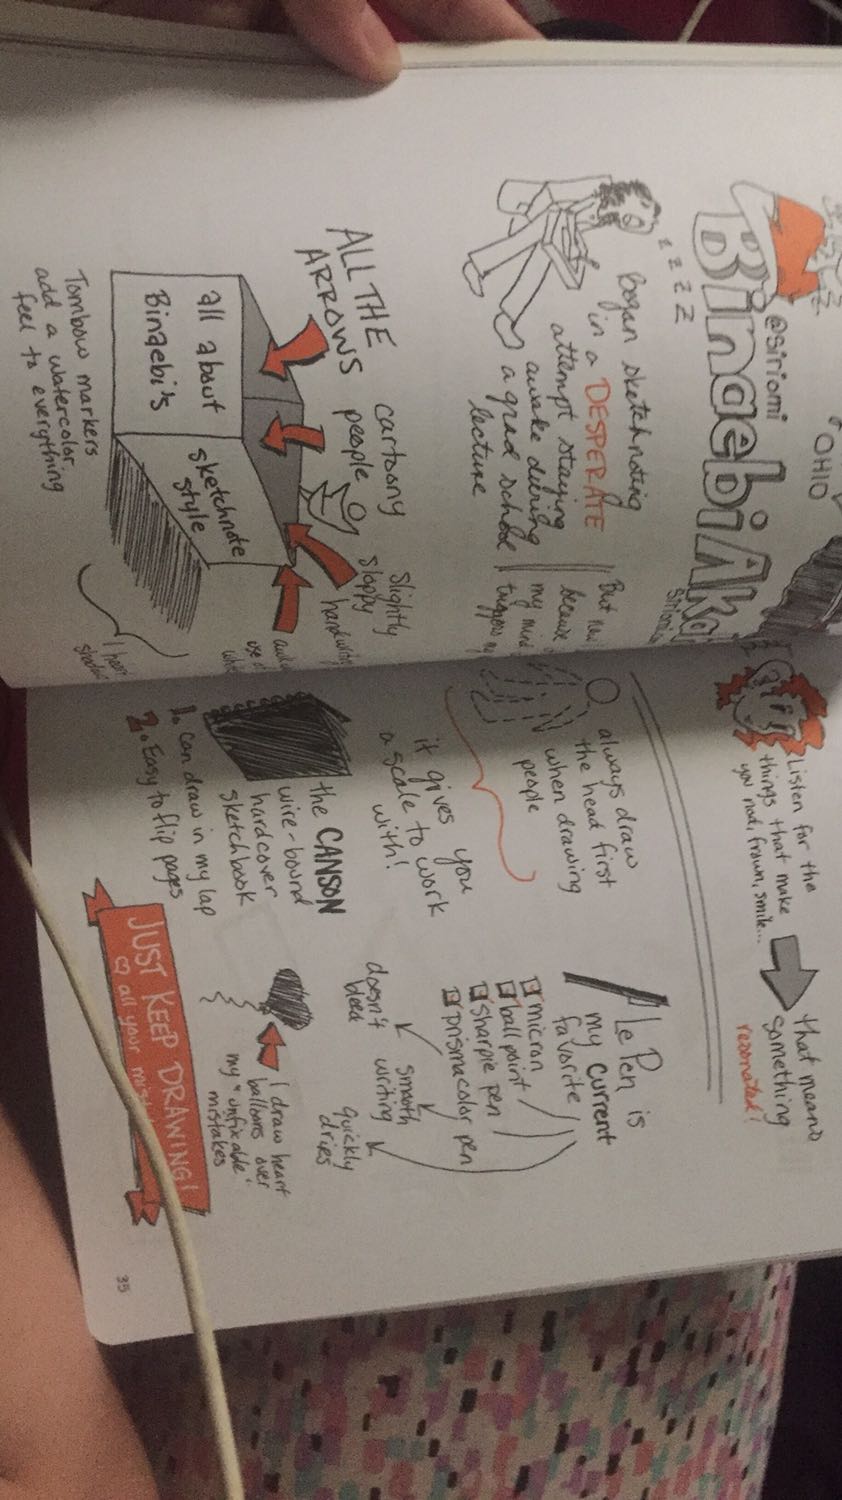 OHIO
@Siriomi
BinaebiAk
z z z z
began sketchnoting
in a DESPERATE
attempt staying
awake during
a grad school
lecture
But
because
my mind
triggers my
ALL THE
ARROWS
cartoony
people
slightly
sloppy
handwriting
all about
Binaebi's
sketchnote
style
use of
Tombow markers
add a watercolor
feel to everything
I
Listen for the
things that make
you nod, frown, smile...
that means
something
resonated!
always draw
the head first
when drawing
people
it gives you
a scale to work
with!
Le Pen is
my current
favorite
micron
ball point
sharpie pen
prismacolor pen
doesn't
bleed
smooth
writing
quickly
dries
the CANSON
wire-bound
hardcover
sketchbook
1. can draw in my lap
2. Easy to flip pages
I draw heart
balloons over
my "unfixable"
mistakes
JUST KEEP DRAWING!
all your
35